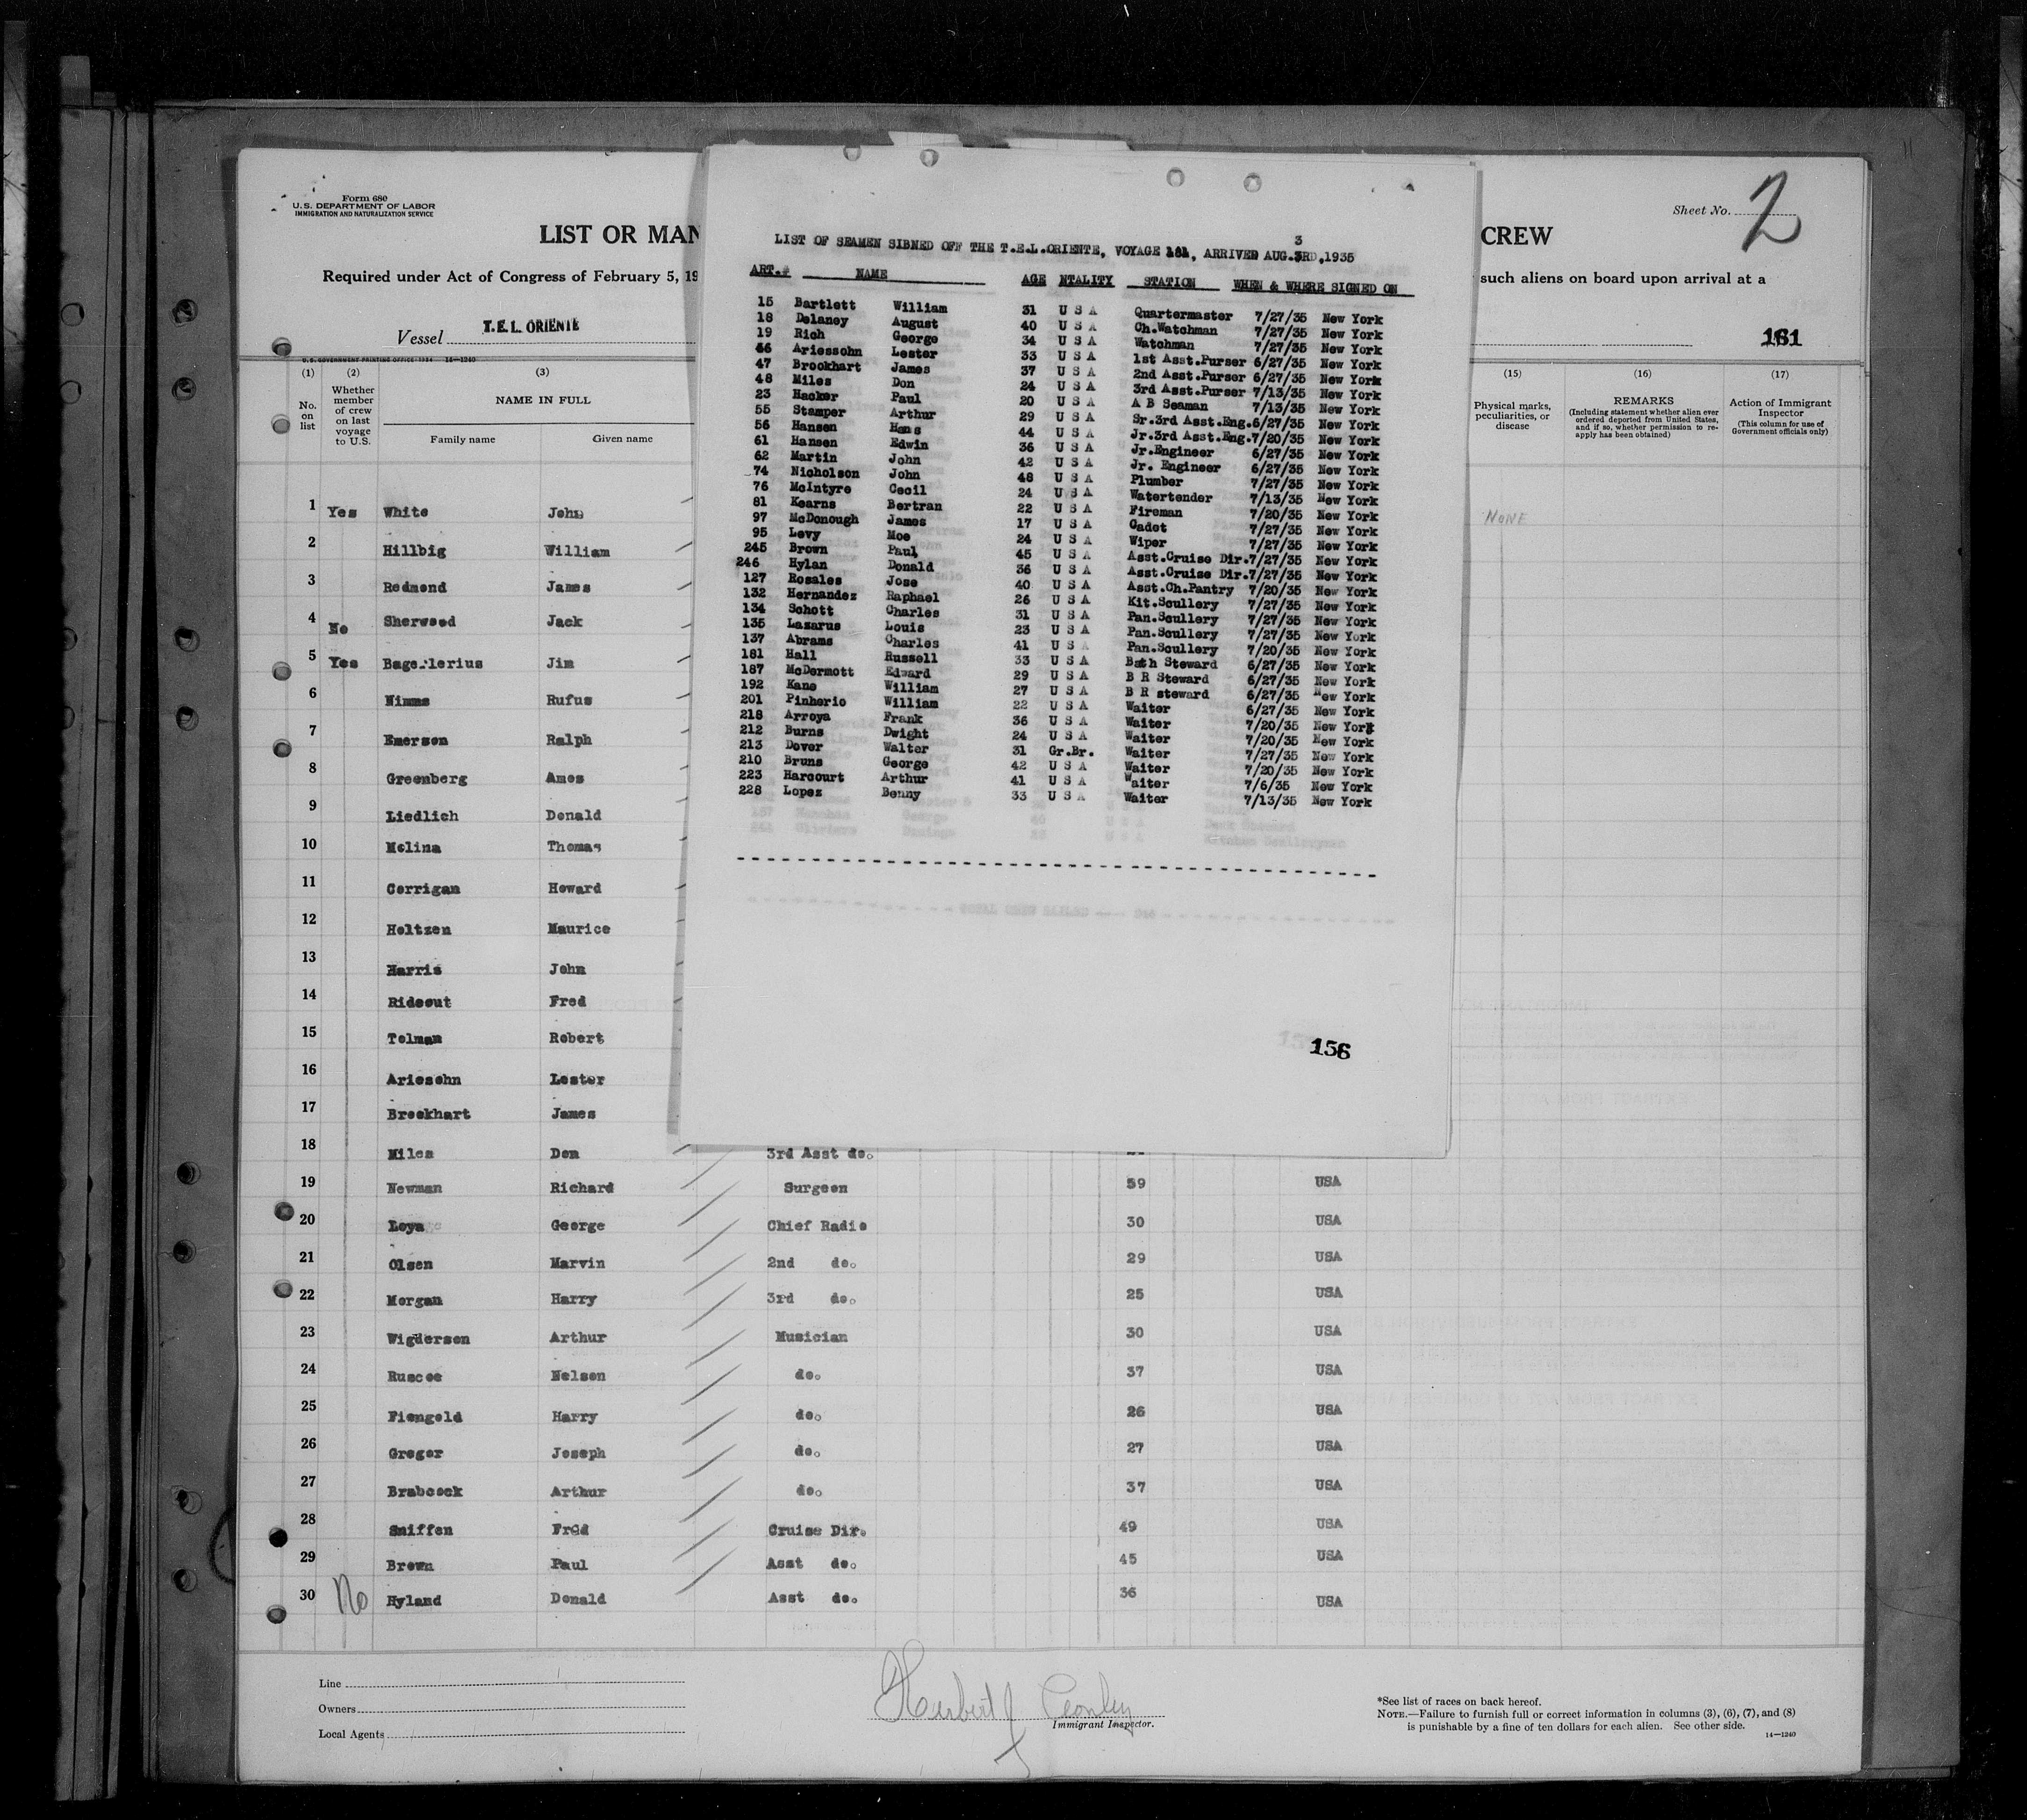 Form 680
U.S. DEPARTMENT OF LABOR
IMMIGRATION AND NATURALIZATION SERVICE
Sheet No. 2
LIST OR MAN
CREW
Required under Act of Congress of February 5, 19
such aliens on board upon arrival at a
Vessel T.E.L. ORIENTE
161
U.S. GOVERNMENT PRINTING OFFICE: 1934 14—1240
(1) (2) (3) (15) (16) (17)
No. on list
Whether member of crew on last voyage to U.S.
NAME IN FULL
Family name Given name
Physical marks, peculiarities, or disease
REMARKS
(Including statement whether alien ever ordered deported from United States, and if so, whether permission to reapply has been obtained)
Action of Immigrant Inspector
(This column for use of Government officials only)
3
LIST OF SEAMEN SIBNED OFF THE T.E.L.ORIENTE, VOYAGE 181, ARRIVED AUG.3RD,1935
ART.# NAME AGE NTALITY STATION WHEN & WHERE SIGNED ON
15 Bartlett William 31 U S A Quartermaster 7/27/35 New York
18 Delaney August 40 U S A Ch.Watchman 7/27/35 New York
19 Rich George 34 U S A Watchman 7/27/35 New York
46 Ariessohn Lester 33 U S A 1st Asst.Purser 6/27/35 New York
47 Brookhart James 37 U S A 2nd Asst.Purser 6/27/35 New York
48 Miles Don 24 U S A 3rd Asst.Purser 7/13/35 New York
23 Hacker Paul 20 U S A A B Seaman 7/13/35 New York
55 Stamper Arthur 29 U S A Sr.3rd Asst.Eng.6/27/35 New York
56 Hansen Hans 44 U S A Jr.3rd Asst.Eng.7/20/35 New York
61 Hansen Edwin 36 U S A Jr.Engineer 6/27/35 New York
62 Martin John 42 U S A Jr. Engineer 6/27/35 New York
74 Nicholson John 48 U S A Plumber 7/27/35 New York
76 McIntyre Cecil 24 U S A Watertender 7/13/35 New York
81 Kearns Bertran 22 U S A Fireman 7/20/35 New York
97 McDonough James 17 U S A Cadet 7/27/35 New York
95 Levy Moe 24 U S A Wiper 7/27/35 New York
245 Brown Paul 45 U S A Asst.Cruise Dir.7/27/35 New York
246 Hylan Donald 36 U S A Asst.Cruise Dir.7/27/35 New York
127 Rosales Jose 40 U S A Asst.Ch.Pantry 7/20/35 New York
132 Hernandez Raphael 26 U S A Kit.Scullery 7/27/35 New York
134 Schott Charles 31 U S A Pan.Scullery 7/27/35 New York
135 Lazarus Louis 23 U S A Pan.Scullery 7/27/35 New York
137 Abrams Charles 41 U S A Pan.Scullery 7/20/35 New York
181 Hall Russell 33 U S A Bath Steward 6/27/35 New York
187 McDermott Edward 29 U S A B R Steward 6/27/35 New York
192 Kane William 27 U S A B R steward 6/27/35 New York
201 Pinherio William 22 U S A Waiter 6/27/35 New York
218 Arroya Frank 36 U S A Waiter 7/20/35 New York
212 Burns Dwight 24 U S A Waiter 7/20/35 New York
213 Dover Walter 31 Gr.Br. Waiter 7/27/35 New York
210 Bruns George 42 U S A Waiter 7/20/35 New York
223 Harcourt Arthur 41 U S A Waiter 7/6/35 New York
228 Lopez Benny 33 U S A Waiter 7/13/35 New York
TOTAL CREW SAILED
156
1 Yes White John NONE
2 Hillbig William
3 Redmond James
4 No Sherwood Jack
5 Yes Bagerlerius Jim
6 Nimms Rufus
7 Emerson Ralph
8 Greenberg Amos
9 Liedlich Donald
10 Molina Thomas
11 Corrigan Howard
12 Holtzen Maurice
13 Harris John
14 Rideout Fred
15 Tolman Robert
16 Ariesohn Lester
17 Brookhart James
18 Miles Don 3rd Asst do.
19 Newman Richard Surgeon 59 USA
20 Loya George Chief Radio 30 USA
21 Olsen Marvin 2nd do. 29 USA
22 Morgan Harry 3rd do. 25 USA
23 Wigderson Arthur Musician 30 USA
24 Ruscoe Nelson do. 37 USA
25 Fiengold Harry do. 26 USA
26 Greger Joseph do. 27 USA
27 Brabcock Arthur do. 37 USA
28 Sniffen Fred Cruise Dir. 49 USA
29 Brown Paul Asst do. 45 USA
30 No Hyland Donald Asst do. 36 USA
Line
Owners
Local Agents
Immigrant Inspector.
*See list of races on back hereof.
NOTE.—Failure to furnish full or correct information in columns (3), (6), (7), and (8)
is punishable by a fine of ten dollars for each alien. See other side.
14—1240